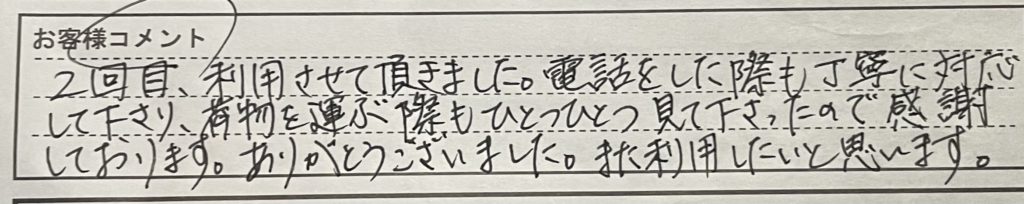 お客様コメント
2回目、利用させて頂きました。電話をした際も丁寧に対応
して下さり、荷物を運ぶ際もひとつひとつ見て下さったので感謝
しております。ありがとうございました。また利用したいと思います。